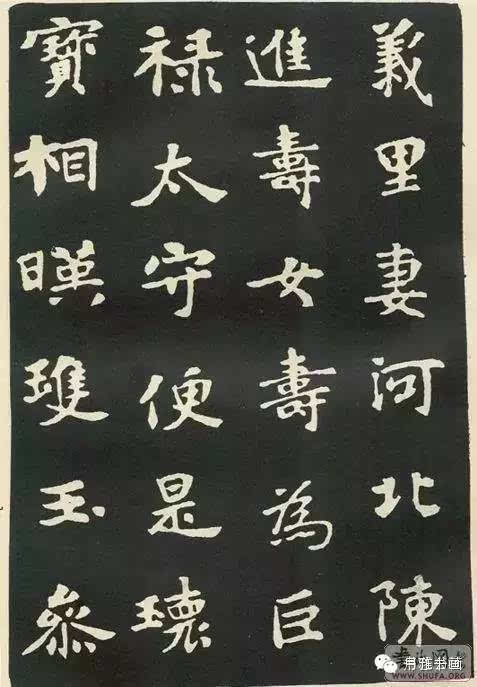 義里妻河北陳
進壽女壽為巨
禄太守便是瓌
寶相暎瓊玉叅
書法网
WWW.SHUFA.ORG
雅书画